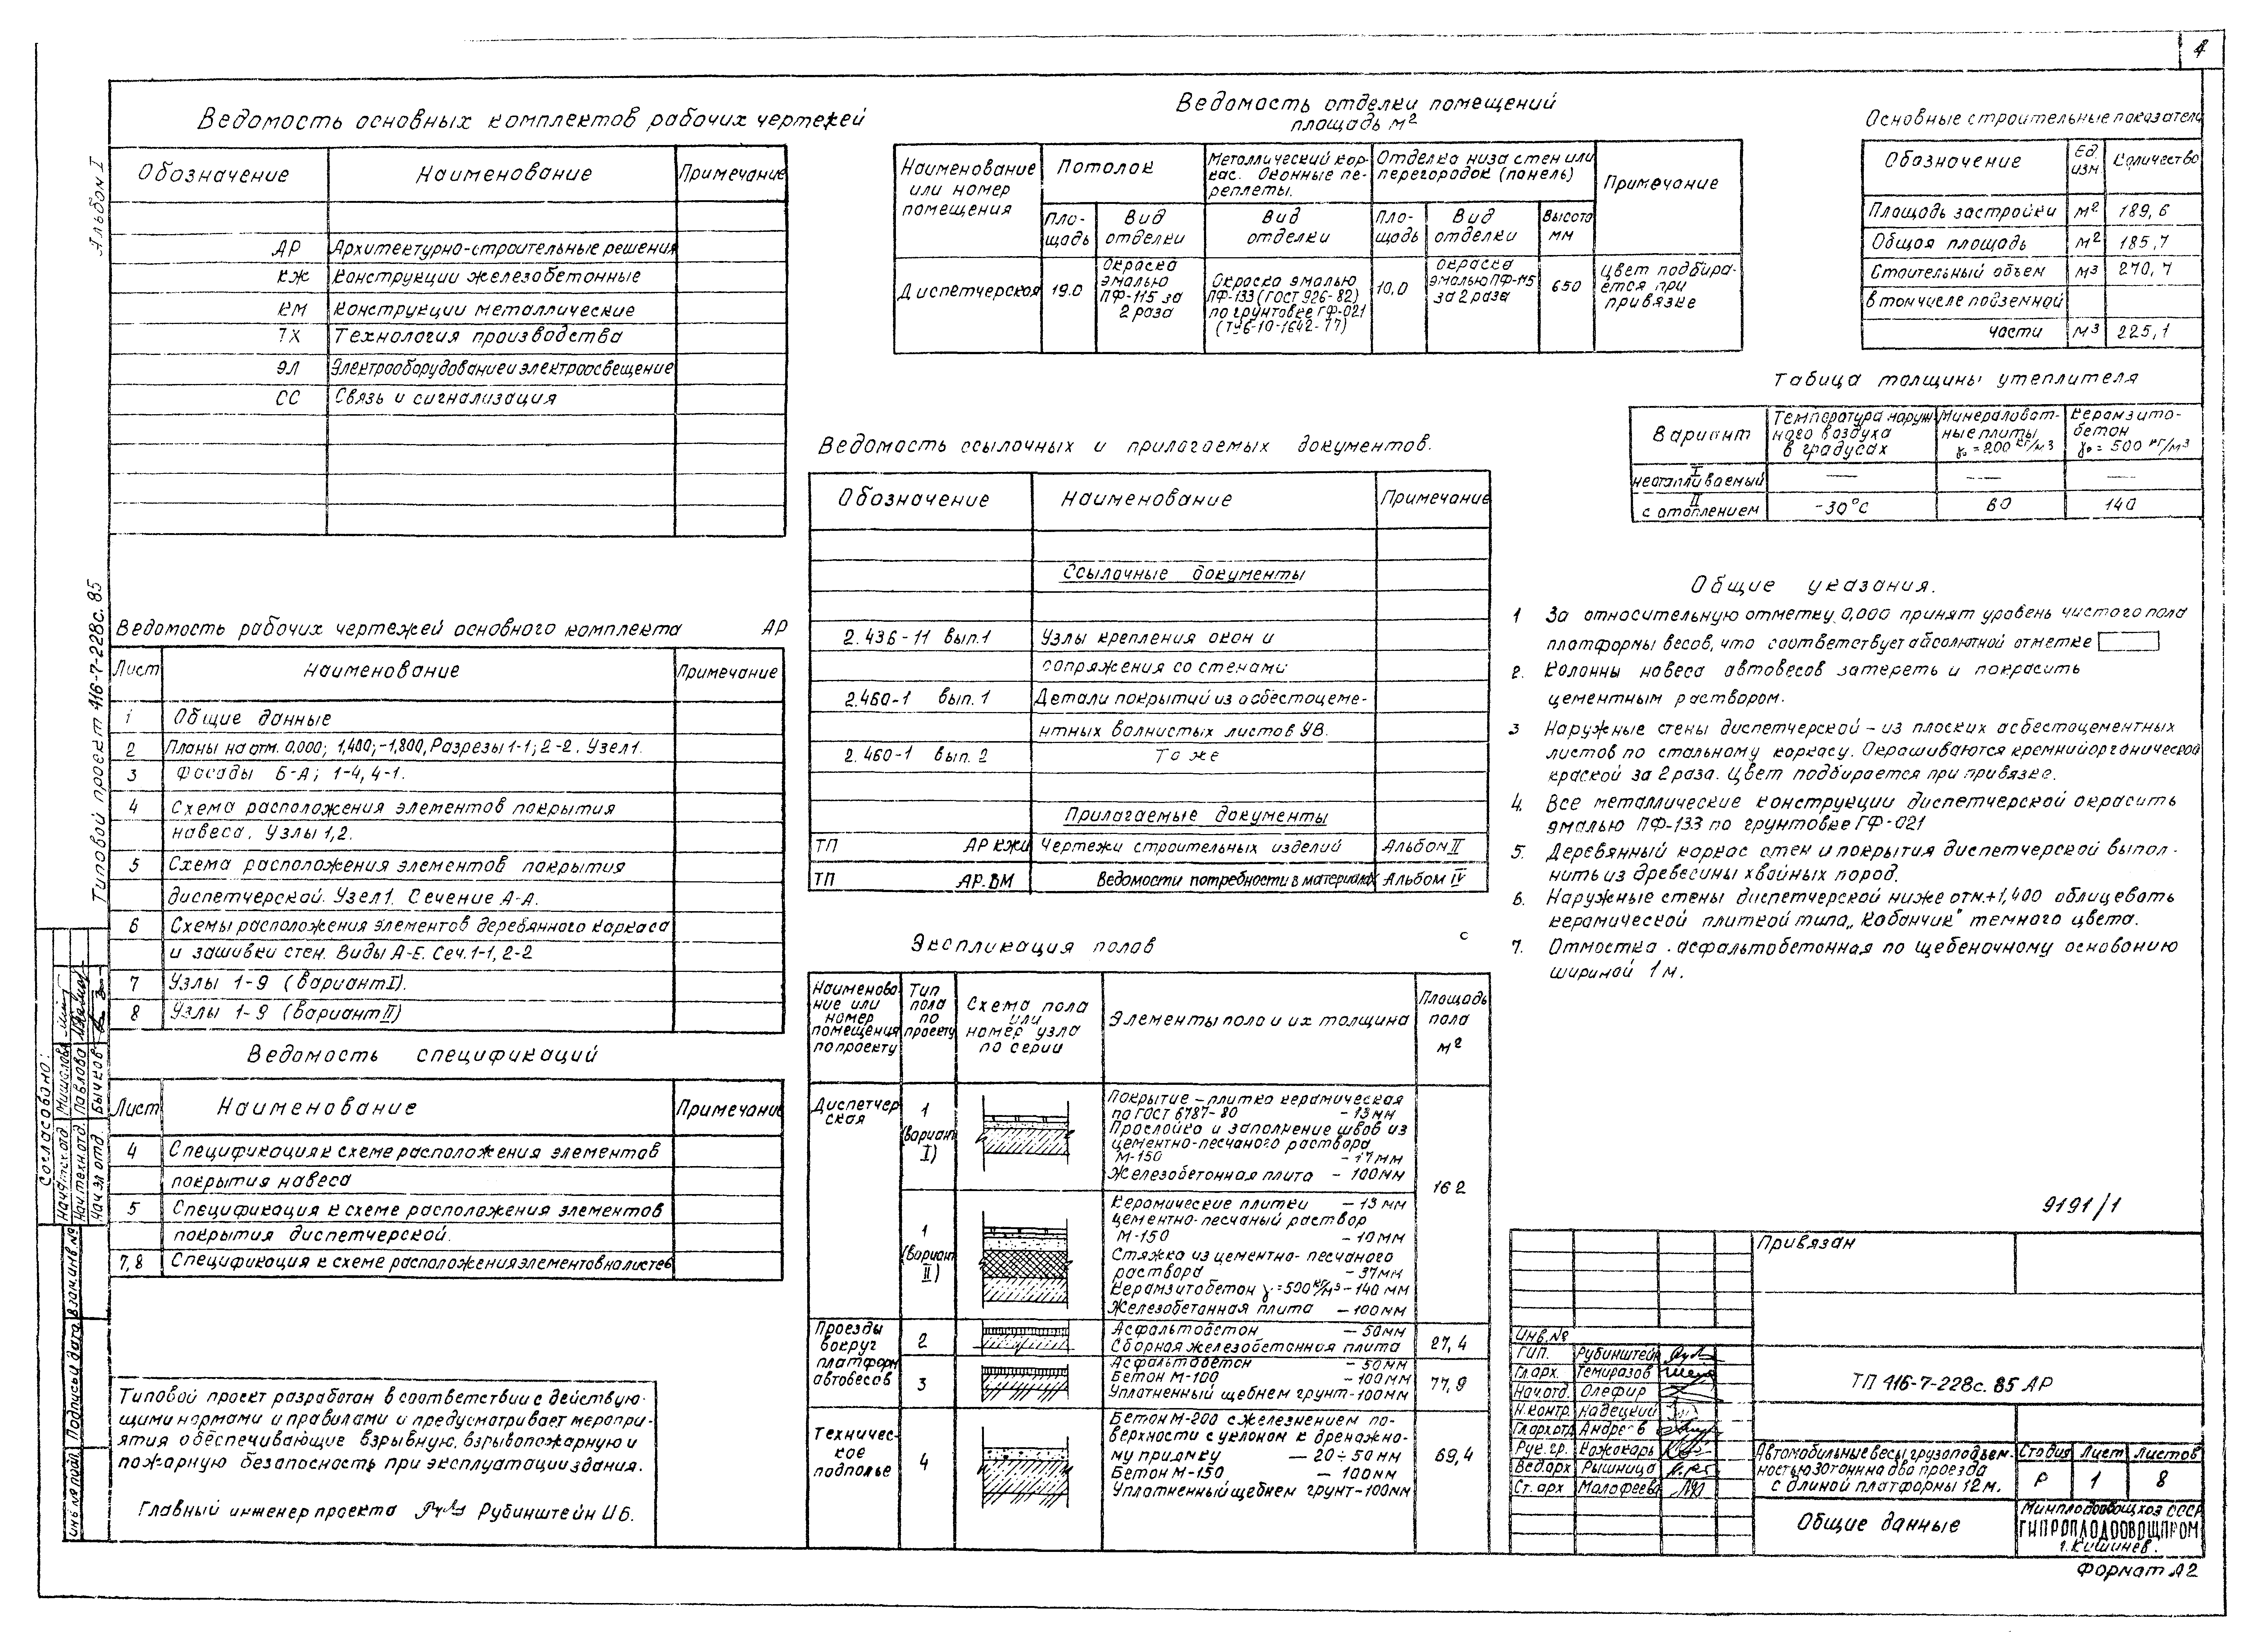 4
Альбом I
Типовой проект 416-7-228с. 85
Ведомость основных комплектов рабочих чертежей
Обозначение Наименование Примечание
АР Архитектурно-строительные решения
КЖ Конструкции железобетонные
КМ Конструкции металлические
ТХ Технология производства
ЭЛ Электрооборудование и электроосвещение
СС Связь и сигнализация
Ведомость рабочих чертежей основного комплекта АР
Лист Наименование Примечание
1 Общие данные
2 Планы на отм. 0,000; 1,400; -1,800, Разрезы 1-1; 2-2. Узел 1.
3 Фасады Б-А; 1-4, 4-1.
4 Схема расположения элементов покрытия
навеса. Узлы 1,2.
5 Схема расположения элементов покрытия
диспетчерской. Узел 1. Сечение А-А.
6 Схемы расположения элементов деревянного каркаса
и зашивки стен. Виды А-Е. Сеч. 1-1, 2-2
7 Узлы 1-9 (вариант I).
8 Узлы 1-9 (вариант II)
Ведомость спецификаций
Лист Наименование Примечание
4 Спецификация к схеме расположения элементов
покрытия навеса
5 Спецификация к схеме расположения элементов
покрытия диспетчерской.
7,8 Спецификация к схеме расположения элементов на листе
Типовой проект разработан в соответствии с действую-
щими нормами и правилами и предусматривает меропри-
ятия обеспечивающие взрывную, взрывопожарную и
пожарную безопасность при эксплуатации здания.
Главный инженер проекта Рубинштейн И Б.
Согласовано:
Нач. отд. Мишалова
Нач технотд. Павлова
Нач эл отд. Бычков
Инв № подл. Подпись и дата Взам. инв №
Ведомость отделки помещений
площадь м²
Наименование или номер помещения
Потолок
Металлический кар-
кас. Оконные пе-
реплеты.
Отделка низа стен или
перегородок (панель)
Примечание
Пло-
щадь
Вид
отделки
Вид
отделки
Пло-
щадь
Вид
отделки
Высота
мм
Диспетчерская
19.0
Окраска
эмалью
ПФ-115 за
2 раза
Окраска эмалью
ПФ-133 (ГОСТ 926-82)
по грунтовке ГФ-021
(ТУ6-10-1642-77)
10,0
окраска
эмалью ПФ-115
за 2 раза
650
Цвет подбира-
ется при
привязке
Ведомость ссылочных и прилагаемых документов.
Обозначение Наименование Примечание
Ссылочные документы
2.436-11 вып.1 Узлы крепления окон и
сопряжения со стенами
2.460-1 вып. 1 Детали покрытий из асбестоцеме-
нтных волнистых листов УВ.
2.460-1 вып. 2 То же
Прилагаемые документы
ТП АР КЖИ Чертежи строительных изделий Альбом II
ТП АР. ВМ Ведомости потребности в материалах Альбом IV
Экспликация полов
с
Наименова-
ние или
номер
помещения
по проекту
Тип
пола
по
проекту
Схема пола
или
номер узла
по серии
Элементы пола и их толщина
Площадь
пола
м²
Диспетчер
ская
1
(вариант
I)
Покрытие – плитка керамическая
по ГОСТ 6787-80 - 13мм
Прослойка и заполнение швов из
цементно-песчаного раствора
М-150 - 17мм
Железобетонная плита - 100мм
16 2
1
(вариант
II)
Керамические плитки - 13 мм
цементно-песчаный раствор
М-150 - 10мм
Стяжка из цементно-песчаного
раствора - 37мм
Керамзитобетон γ=500кг/м³ - 140 мм
Железобетонная плита - 100мм
Проезды
вокруг
платформ
автовесов
2
Асфальтобетон - 50мм
Сборная железобетонная плита
27,4
3
Асфальтобетон - 50мм
Бетон М-100 - 100мм
Уплотненный щебнем грунт-100мм
77,9
Техничес-
кое
подполье
4
Бетон М-200 с железнением по-
верхности с уклоном к дренажно-
му приямку - 20÷50 мм
Бетон М-150 - 100мм
Уплотненный щебнем грунт-100мм
69,4
Основные строительные показатели
Обозначение Ед. изм Количество
Площадь застройки м² 189,6
Общая площадь м² 185,7
Стоительный объем м³ 270,7
в том числе подземной
части м³ 225,1
Табица толщины утеплителя
Вариант
Температура наруж
ного воздуха
в градусах
Минераловат-
ные плиты
γ₀=200 кг/м3
Керамзито-
бетон
γ₀=500 кг/м3
I
неотапливаемый — — —
II
с отоплением -30°С 60 140
Общие указания.
1 За относительную отметку 0,000 принят уровень чистого пола
платформы весов, что соответствует абсолютной отметке
2. Колонны навеса автовесов затереть и покрасить
цементным раствором.
3 Наружные стены диспетчерской – из плоских асбестоцементных
листов по стальному каркасу. Окрашиваются кремнийорганической
краской за 2 раза. Цвет подбирается при привязке.
4. Все металлические конструкции диспетчерской окрасить
эмалью ПФ-133 по грунтовке ГФ-021
5. Деревянный каркас стен и покрытия диспетчерской выпол-
нить из древесины хвойных пород.
6. Наружные стены диспетчерской ниже отм.+1,400 облицевать
керамической плиткой типа „Кабанчик" темного цвета.
7. Отмостка - асфальтобетонная по щебеночному основанию
шириной 1м.
9191/1
Привязан
Инв.№
Гип. Рубинштейн
Гл.арх. Темиразов
Нач.отд. Олефир
Н.контр. Надецкий
Гл.арх.отд Андреев
Рук.гр. Кожокарь
Вед.арх Рышница
Ст. арх Малофеева
ТП 416-7-228с. 85 АР
Автомобильные весы грузоподъем-
ностью 30тонн на два проезда
с длиной платформы 12м.
Стадия Лист Листов
Р 1 8
Общие данные
Минплодоовощхоз СССР
ГИПРОПЛОДООВОЩПРОМ
г. Кишинев.
Формат А2